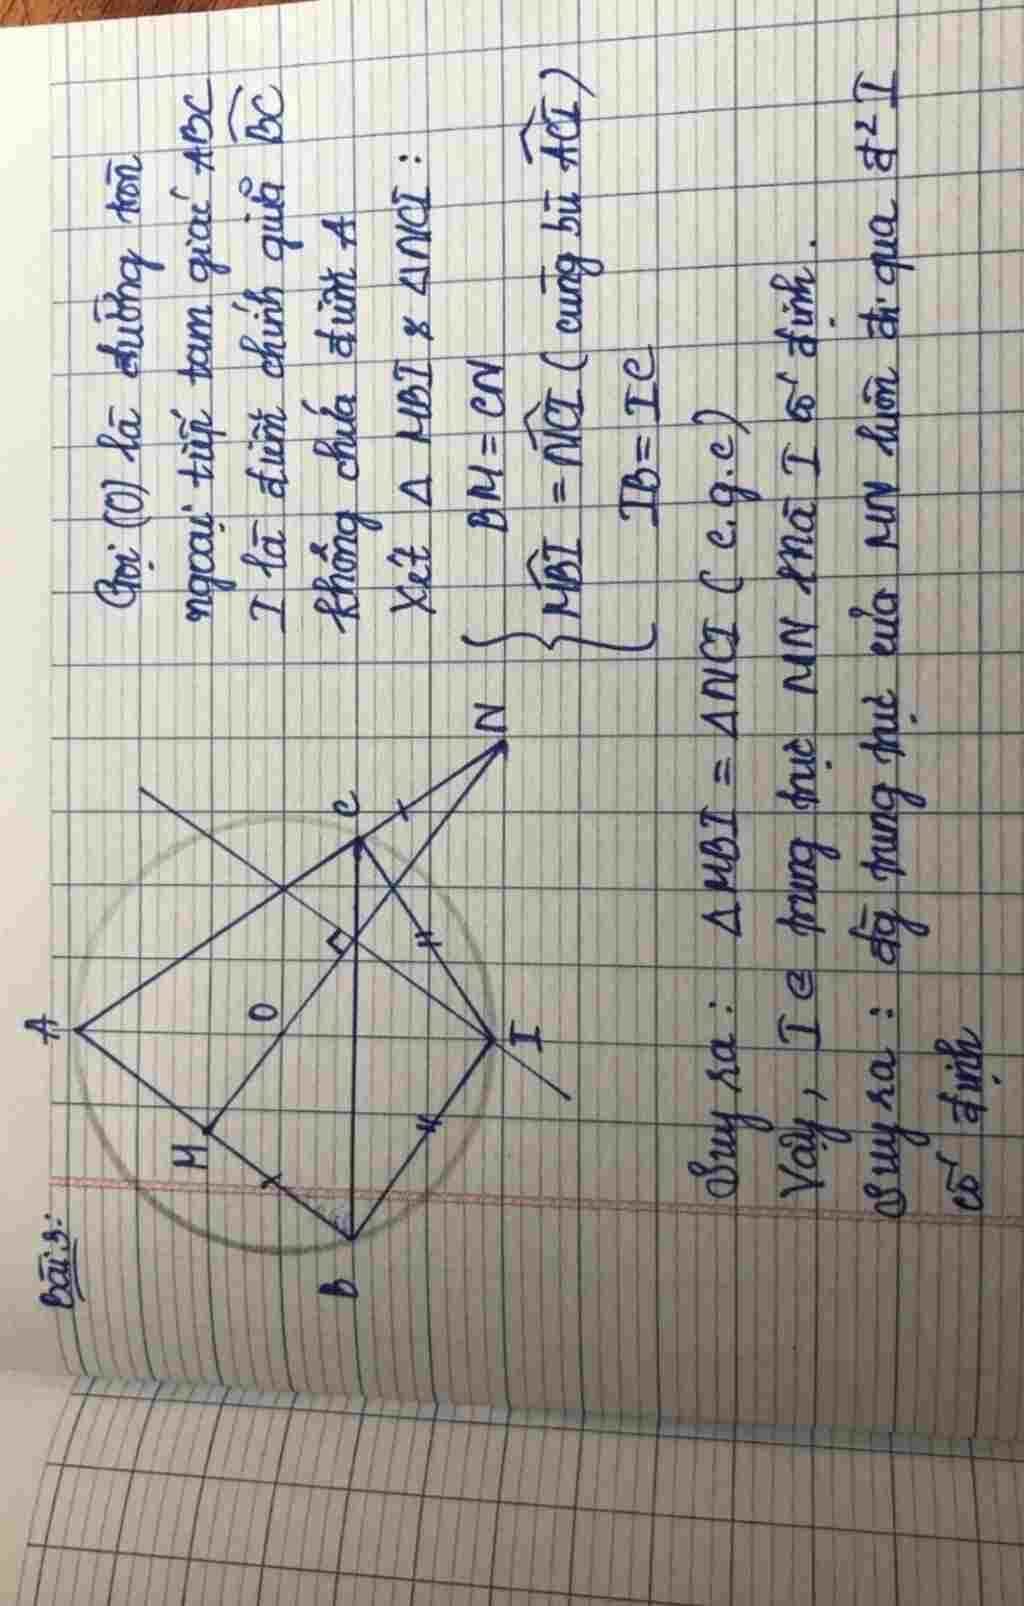 Bài 3:
A
M
O
B
C
N
I
Gọi (O) là đường tròn
ngoại tiếp tam giác ABC
I là điểm chính giữa BC
không chứa điểm A
Xét Δ MBI & ΔNCI :
BM = CN
MBI = NCI ( cùng bù ACI )
IB = IC
Suy ra : ΔMBI = ΔNCI ( c.g.c )
Vậy, I ∈ trung trực MN mà I cố định.
Suy ra : đg trung trực của MN luôn đi qua đ² I
cố định